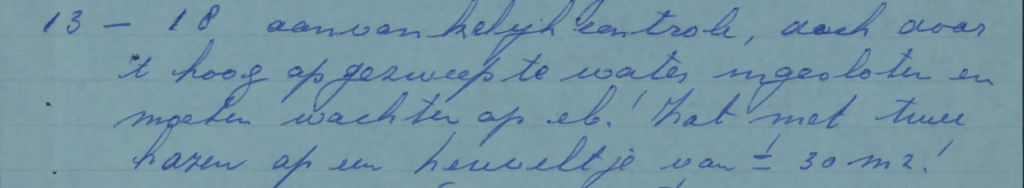 13 - 18 aanvankelijk controle, doch door
't hoog opgezweepte water ingesloten en
moeten wachten op eb! Zat met twee
hazen op een heuveltje van ± 30 m2!